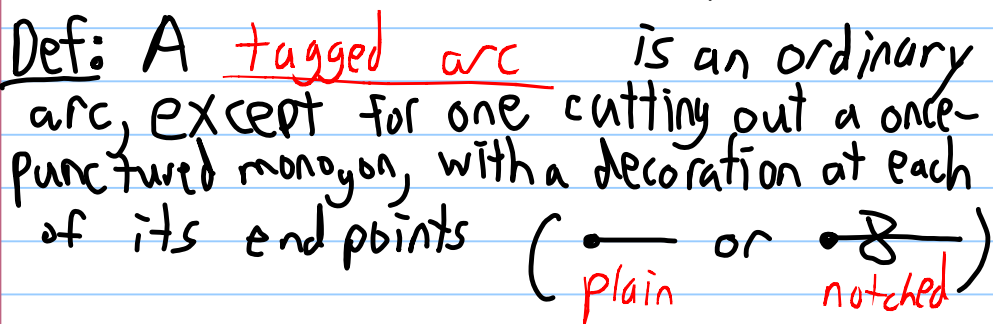 Def: A tagged arc is an ordinary
arc, except for one cutting out a once-
punctured monogon, with a decoration at each
of its endpoints ( or )
plain notched